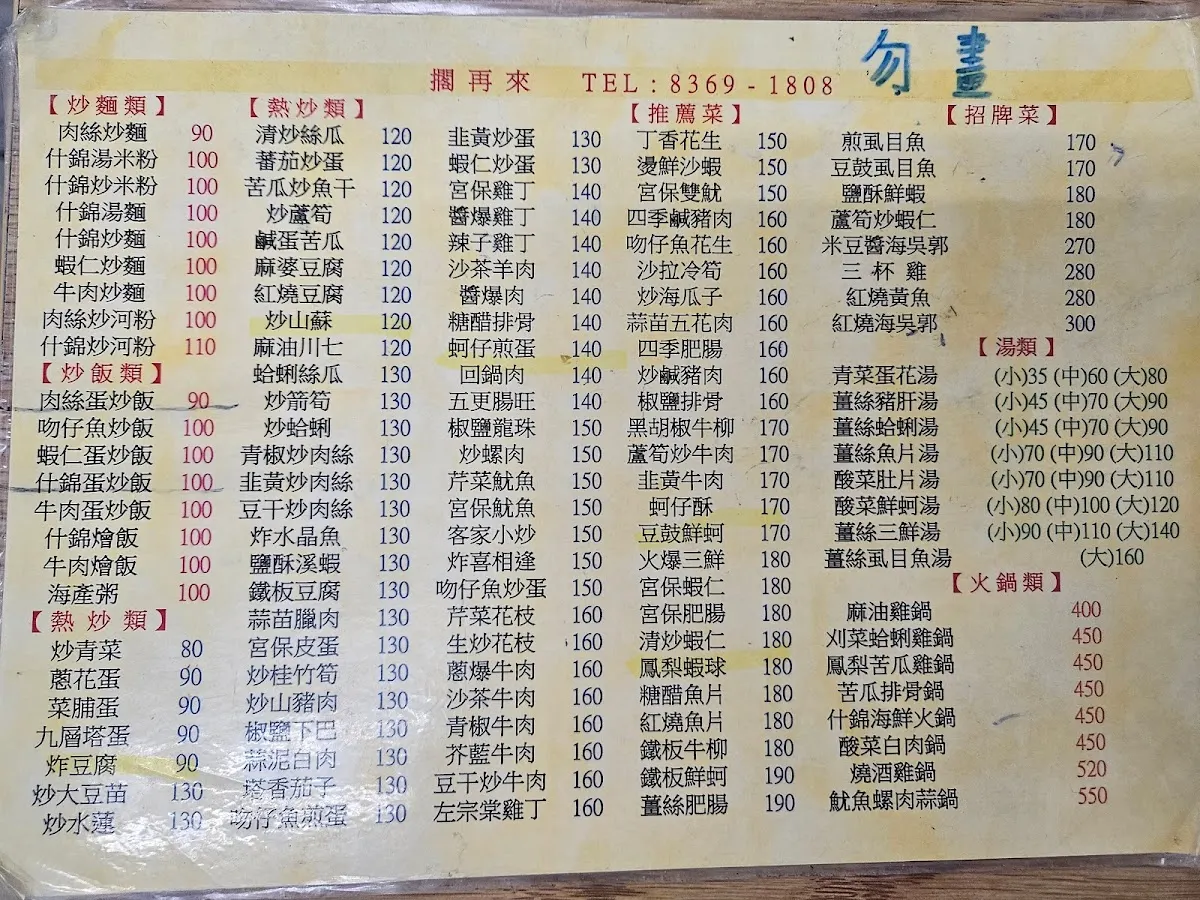 勿畫
擱再來 TEL：8369-1808
【炒麵類】
肉絲炒麵 90
什錦湯米粉 100
什錦炒米粉 100
什錦湯麵 100
什錦炒麵 100
蝦仁炒麵 100
牛肉炒麵 100
肉絲炒河粉 100
什錦炒河粉 110
【炒飯類】
肉絲蛋炒飯 90
吻仔魚炒飯 100
蝦仁蛋炒飯 100
什錦蛋炒飯 100
牛肉蛋炒飯 100
什錦燴飯 100
牛肉燴飯 100
海產粥 100
【熱炒類】
炒青菜 80
蔥花蛋 90
菜脯蛋 90
九層塔蛋 90
炸豆腐 90
炒大豆苗 130
炒水蓮 130
【熱炒類】
清炒絲瓜 120
蕃茄炒蛋 120
苦瓜炒魚干 120
炒蘆筍 120
鹹蛋苦瓜 120
麻婆豆腐 120
紅燒豆腐 120
炒山蘇 120
麻油川七 120
蛤蜊絲瓜 130
炒箭筍 130
炒蛤蜊 130
青椒炒肉絲 130
韭黃炒肉絲 130
豆干炒肉絲 130
炸水晶魚 130
鹽酥溪蝦 130
鐵板豆腐 130
蒜苗臘肉 130
宮保皮蛋 130
炒桂竹筍 130
炒山豬肉 130
椒鹽下巴 130
蒜泥白肉 130
塔香茄子 130
吻仔魚煎蛋 130
韭黃炒蛋 130
蝦仁炒蛋 130
宮保雞丁 140
醬爆雞丁 140
辣子雞丁 140
沙茶羊肉 140
醬爆肉 140
糖醋排骨 140
蚵仔煎蛋 140
回鍋肉 140
五更腸旺 140
椒鹽龍珠 150
炒螺肉 150
芹菜魷魚 150
宮保魷魚 150
客家小炒 150
炸喜相逢 150
吻仔魚炒蛋 150
芹菜花枝 160
生炒花枝 160
蔥爆牛肉 160
沙茶牛肉 160
青椒牛肉 160
芥藍牛肉 160
豆干炒牛肉 160
左宗棠雞丁 160
【推薦菜】
丁香花生 150
燙鮮沙蝦 150
宮保雙魷 150
四季鹹豬肉 160
吻仔魚花生 160
沙拉冷筍 160
炒海瓜子 160
蒜苗五花肉 160
四季肥腸 160
炒鹹豬肉 160
椒鹽排骨 160
黑胡椒牛柳 170
蘆筍炒牛肉 170
韭黃牛肉 170
蚵仔酥 170
豆鼓鮮蚵 170
火爆三鮮 180
宮保蝦仁 180
宮保肥腸 180
清炒蝦仁 180
鳳梨蝦球 180
糖醋魚片 180
紅燒魚片 180
鐵板牛柳 180
鐵板鮮蚵 190
薑絲肥腸 190
【招牌菜】
煎虱目魚 170
豆鼓虱目魚 170
鹽酥鮮蝦 180
蘆筍炒蝦仁 180
米豆醬海吳郭 270
三杯雞 280
紅燒黃魚 280
紅燒海吳郭 300
【湯類】
青菜蛋花湯 (小)35 (中)60 (大)80
薑絲豬肝湯 (小)45 (中)70 (大)90
薑絲蛤蜊湯 (小)45 (中)70 (大)90
薑絲魚片湯 (小)70 (中)90 (大)110
酸菜肚片湯 (小)70 (中)90 (大)110
酸菜鮮蚵湯 (小)80 (中)100 (大)120
薑絲三鮮湯 (小)90 (中)110 (大)140
薑絲虱目魚湯 (大)160
【火鍋類】
麻油雞鍋 400
刈菜蛤蜊雞鍋 450
鳳梨苦瓜雞鍋 450
苦瓜排骨鍋 450
什錦海鮮火鍋 450
酸菜白肉鍋 450
燒酒雞鍋 520
魷魚螺肉蒜鍋 550